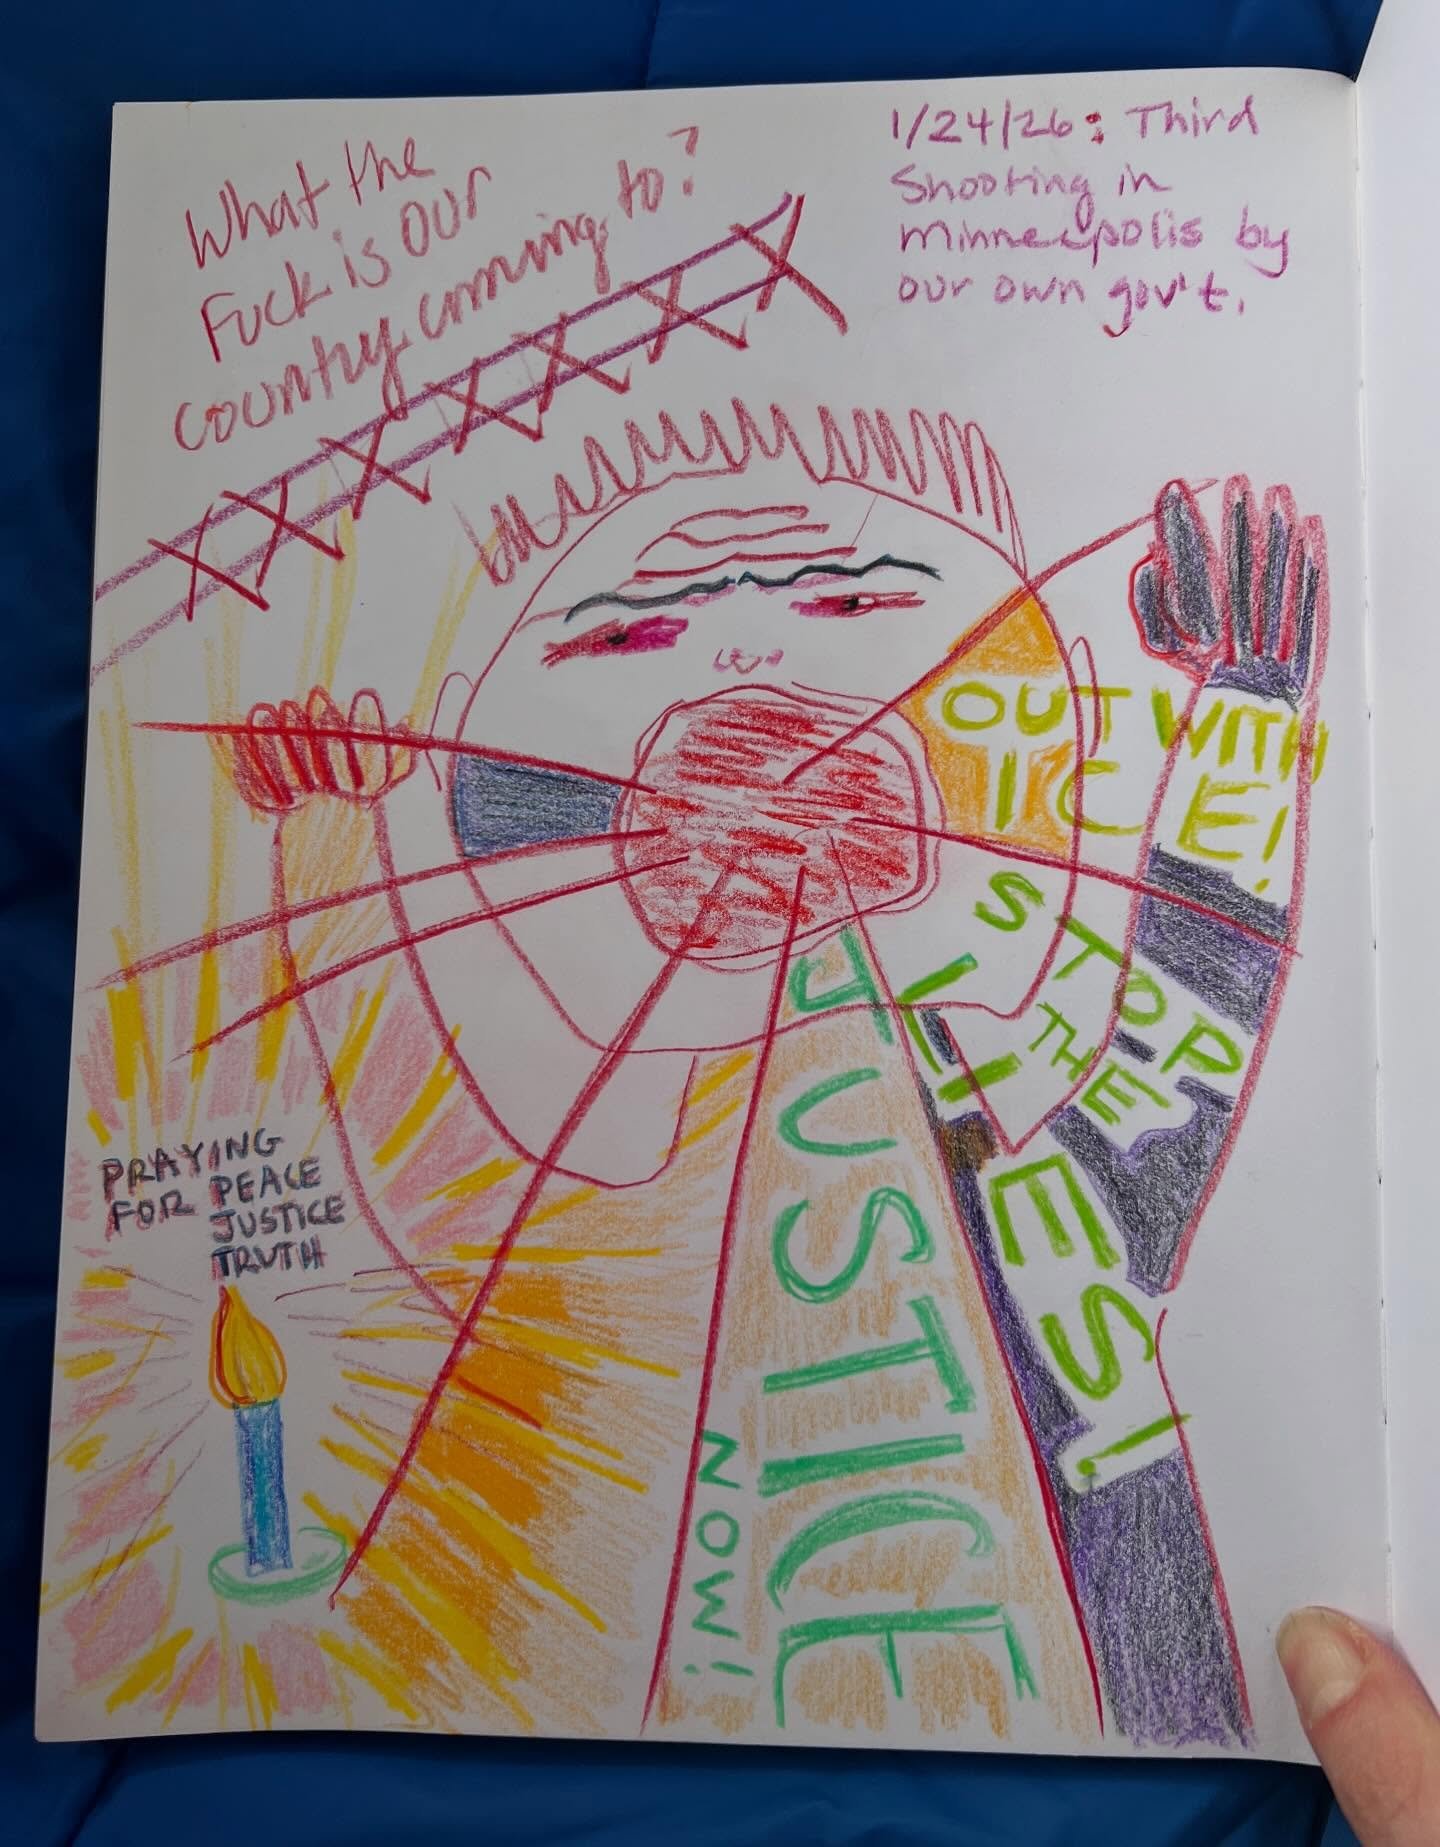 What the
Fuck is our
country coming to?
1/24/26: Third
Shooting in
Minneapolis by
our own gov't.
OUT WITH
ICE!
STOP
THE
LIES!
JUSTICE
NOW!
PRAYING
FOR PEACE
JUSTICE
TRUTH